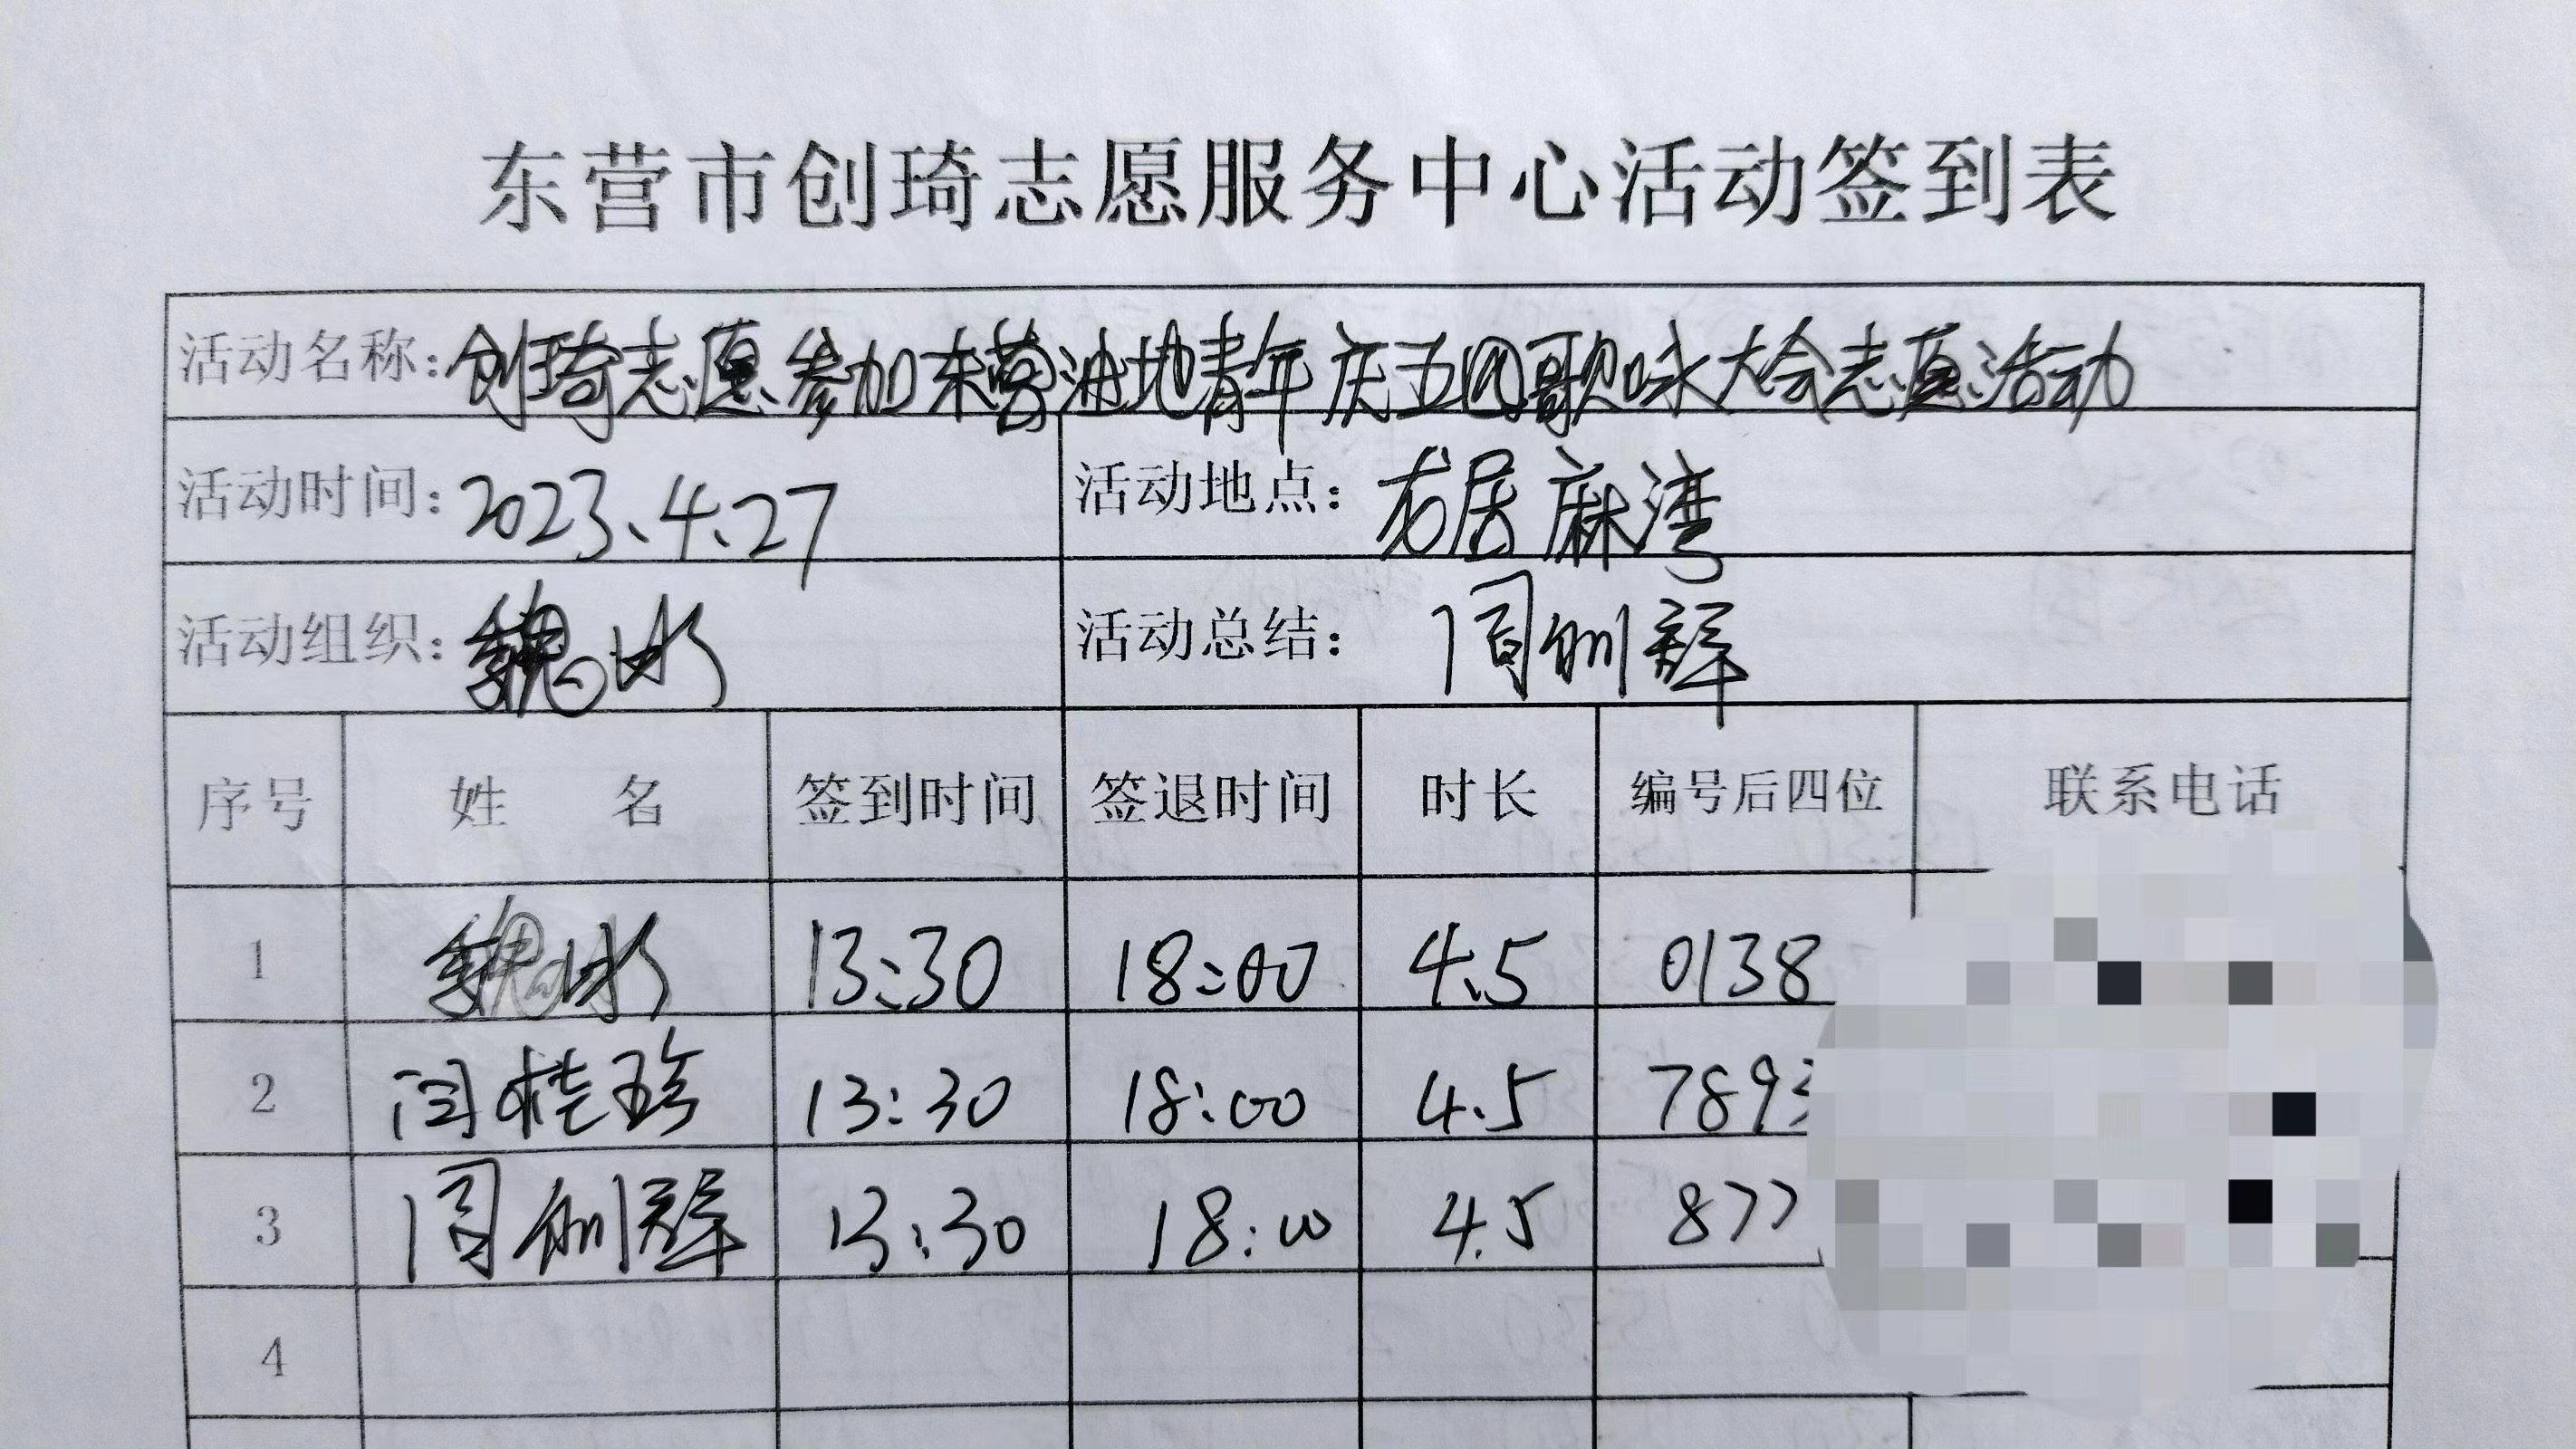 东营市创琦志愿服务中心活动签到表
活动名称：创琦志愿参加东营油地青年庆五四歌咏大会志愿活动
活动时间：2023.4.27 活动地点：龙居麻湾
活动组织：魏冰 活动总结：闫训群
序号 姓 名 签到时间 签退时间 时长 编号后四位 联系电话
1 魏冰 13:30 18:00 4.5 0138
2 闫桂珍 13:30 18:00 4.5 789
3 闫训群 13:30 18:00 4.5 877
4